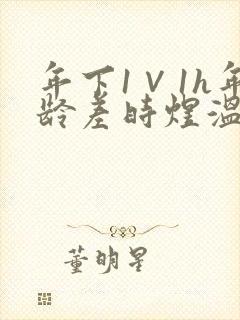 年下1V1h年
龄差时煜温
董明星